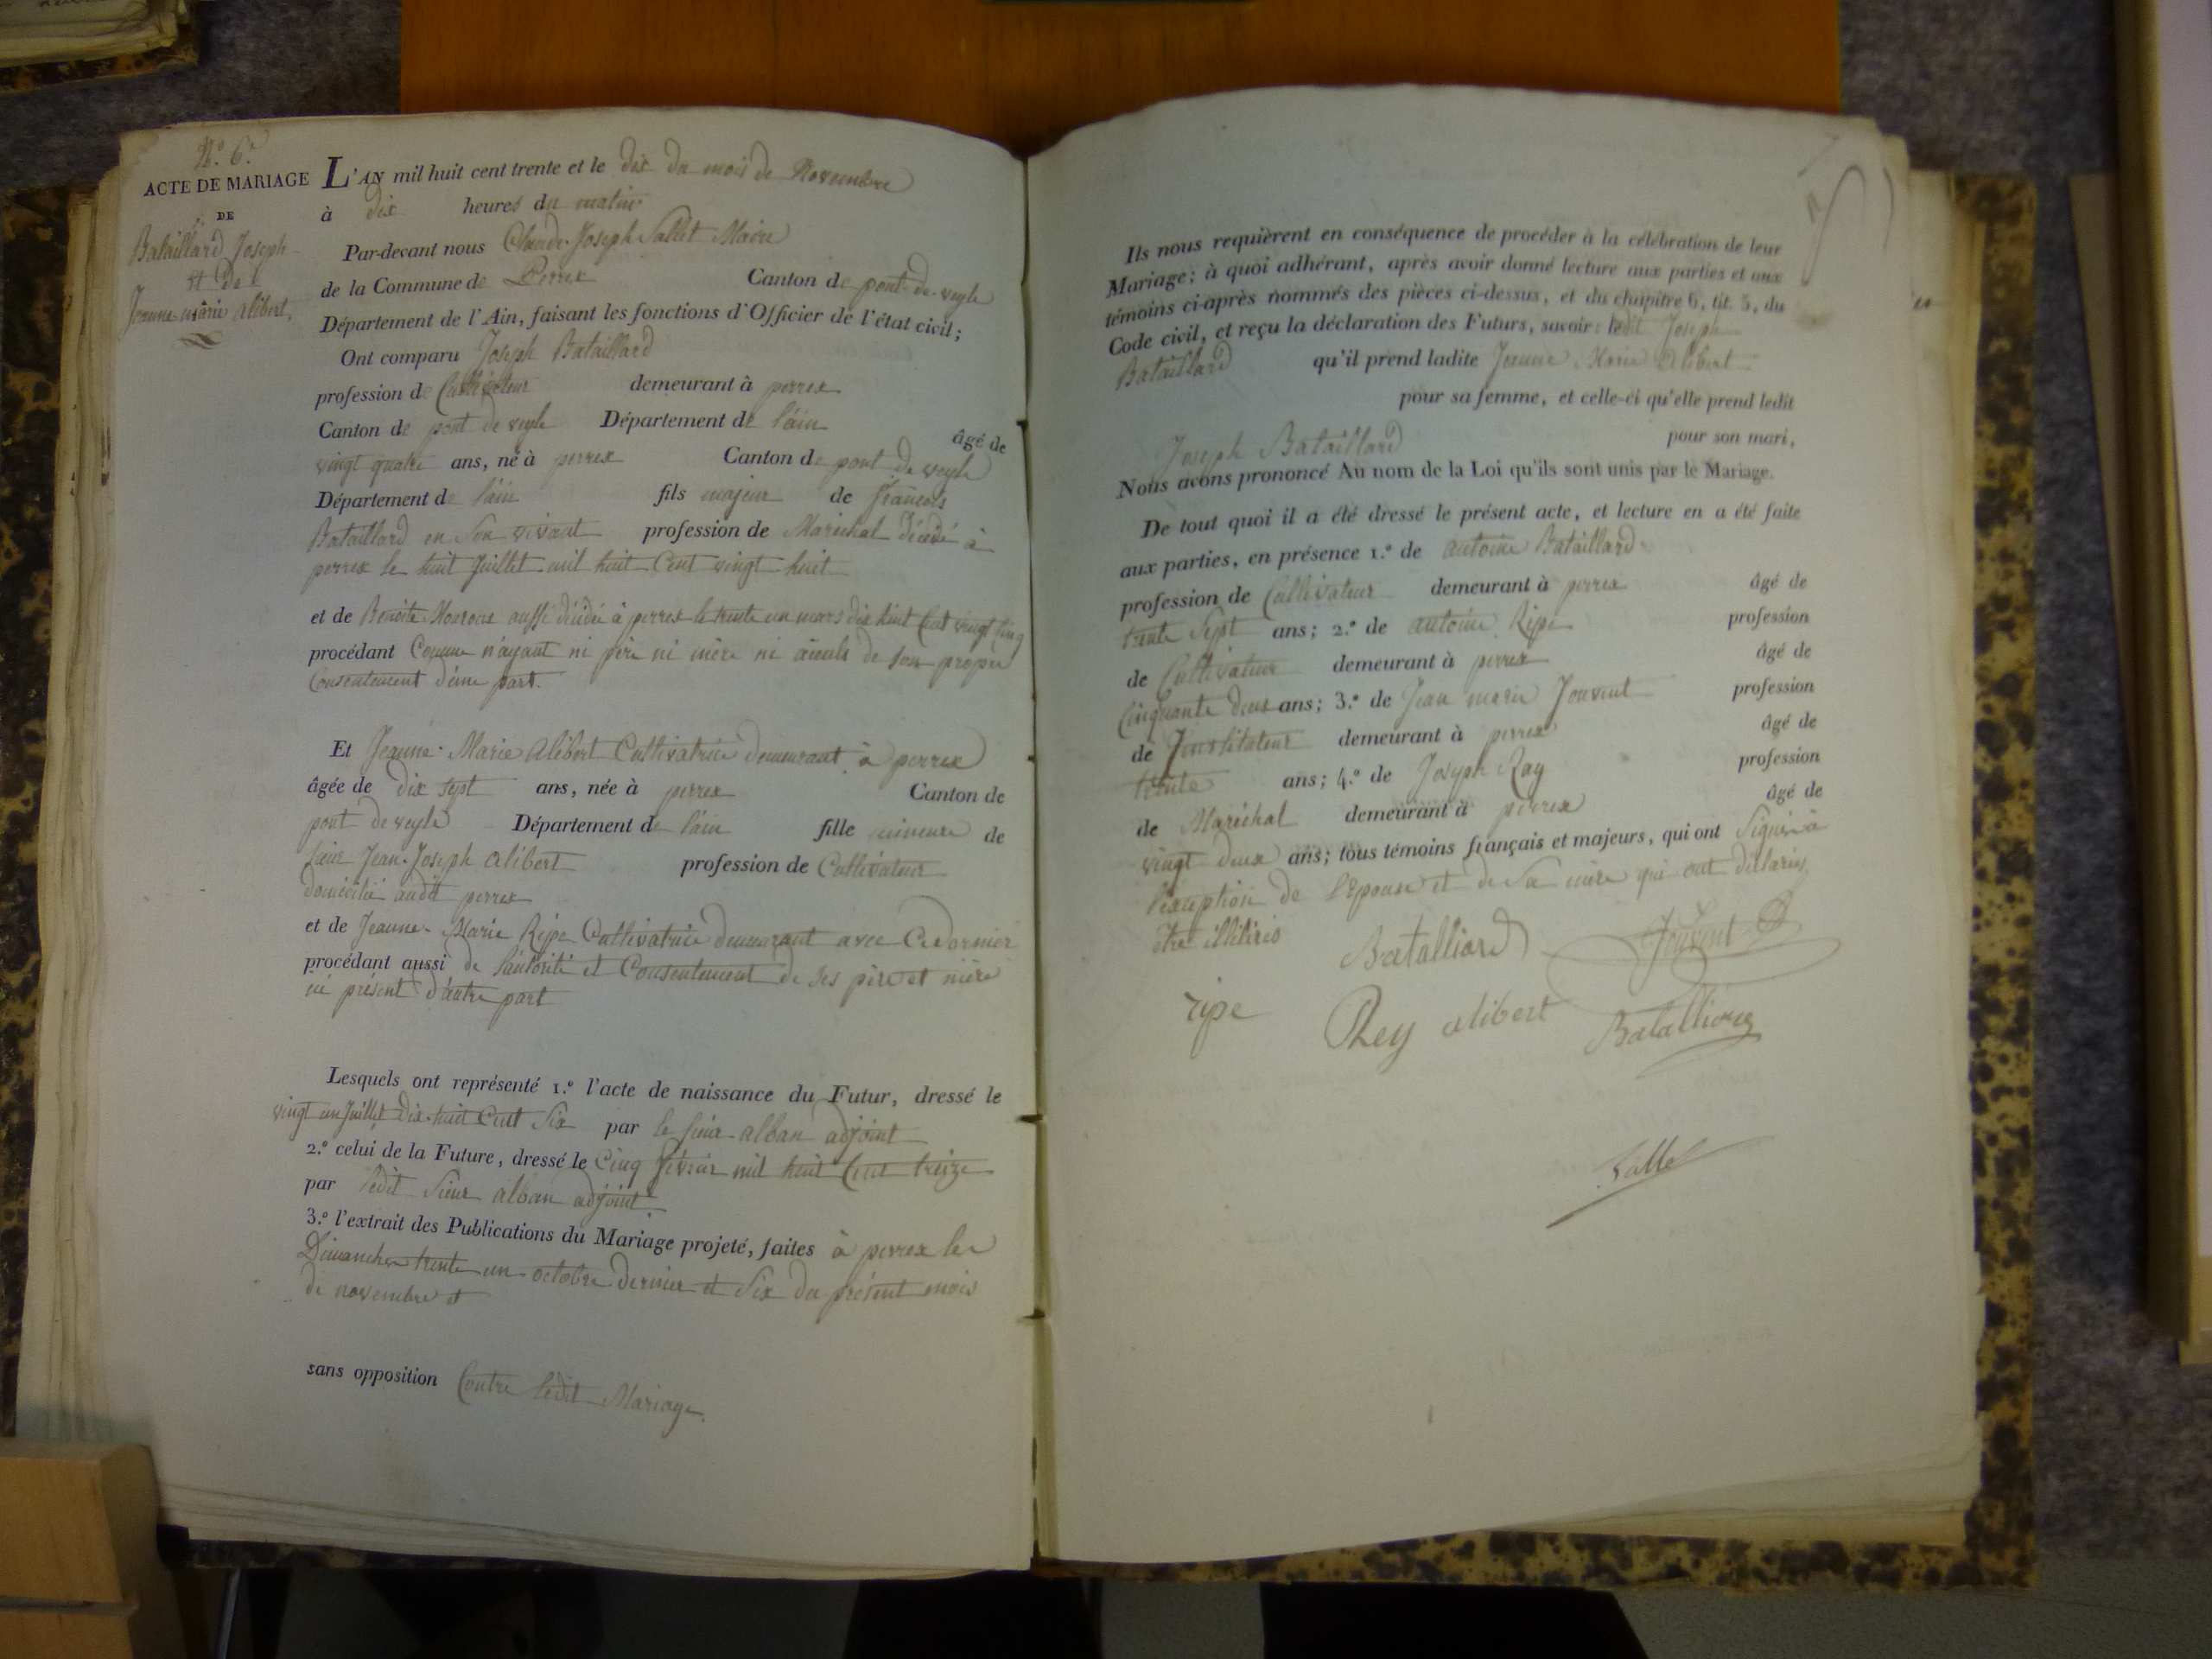 N.° 6.e
ACTE DE MARIAGE
DE
Bataillard Joseph
et de
Jeanne-marie alibert,
L'AN mil huit cent trente et le dix du mois de Novembre
à dix heures du matin
Par-devant nous Claude-Joseph Sallet Maire
de la Commune de Perrex Canton de pont-de-veyle
Département de l'Ain, faisant les fonctions d'Officier de l'état civil;
Ont comparu Joseph Bataillard
profession de Cultivateur demeurant à perrex
Canton de pont de veyle Département de l'ain âgé de
vingt quatre ans, né à perrex Canton de pont de veyle
Département de l'ain fils majeur de françois
Bataillard en Son vivant profession de Maréchal décédé à
perrex le huit Juillet mil huit Cent vingt huit
et de Benoite aussi décédée à perrex le trente un mars dix huit Cent vingt Cinq
procédant Comme n'ayant ni père ni mère ni aieuls de son propre
Consentement d'une part.
Et Jeanne-Marie Alibert Cultivatrice demeurant à perrex
âgée de dix sept ans, née à perrex Canton de
pont de veyle Département de l'ain fille mineure de
sieur Jean-Joseph alibert profession de Cultivateur
domicilié audit perrex
et de Jeanne-Marie Ripe Cultivatrice demeurant avec Ce dernier
procédant aussi de l'autorité et Consentement de ses père et mère
ici présent d'autre part
Lesquels ont représenté 1.° l'acte de naissance du Futur, dressé le
vingt un Juillet dix-huit Cent Six par le sieur alban adjoint
2.° celui de la Future, dressé le Cinq février mil huit Cent treize
par ledit Sieur alban adjoint
3.° l'extrait des Publications du Mariage projeté, faites à perrex les
Dimanches trente un octobre dernier et Six du présent mois
de novembre et
sans opposition Contre ledit Mariage.
Ils nous requièrent en conséquence de procéder à la célébration de leur
Mariage; à quoi adhérant, après avoir donné lecture aux parties et aux
témoins ci-après nommés des pièces ci-dessus, et du chapitre 6, tit. 5, du
Code civil, et reçu la déclaration des Futurs, savoir: ledit Joseph
Bataillard qu'il prend ladite Jeanne-Marie Alibert
pour sa femme, et celle-ci qu'elle prend ledit
Joseph Bataillard pour son mari,
Nous avons prononcé Au nom de la Loi qu'ils sont unis par le Mariage.
De tout quoi il a été dressé le présent acte, et lecture en a été faite
aux parties, en présence 1.° de antoine Bataillard
profession de Cultivateur demeurant à perrex âgé de
trente Sept ans; 2.° de antoine Ripe profession
de Cultivateur demeurant à perrex âgé de
Cinquante deux ans; 3.° de Jean marie Jouvent profession
de Institateur demeurant à perrex âgé de
trente ans; 4.° de Joseph Ray profession
de Maréchal demeurant à perrex âgé de
vingt deux ans; tous témoins français et majeurs, qui ont Signés à
l'exception de l'Epouse et de Sa mère qui ont déclarés
être illitirés
Batalliard Jouvent
ripe Rey alibert Batalliard
Sallet